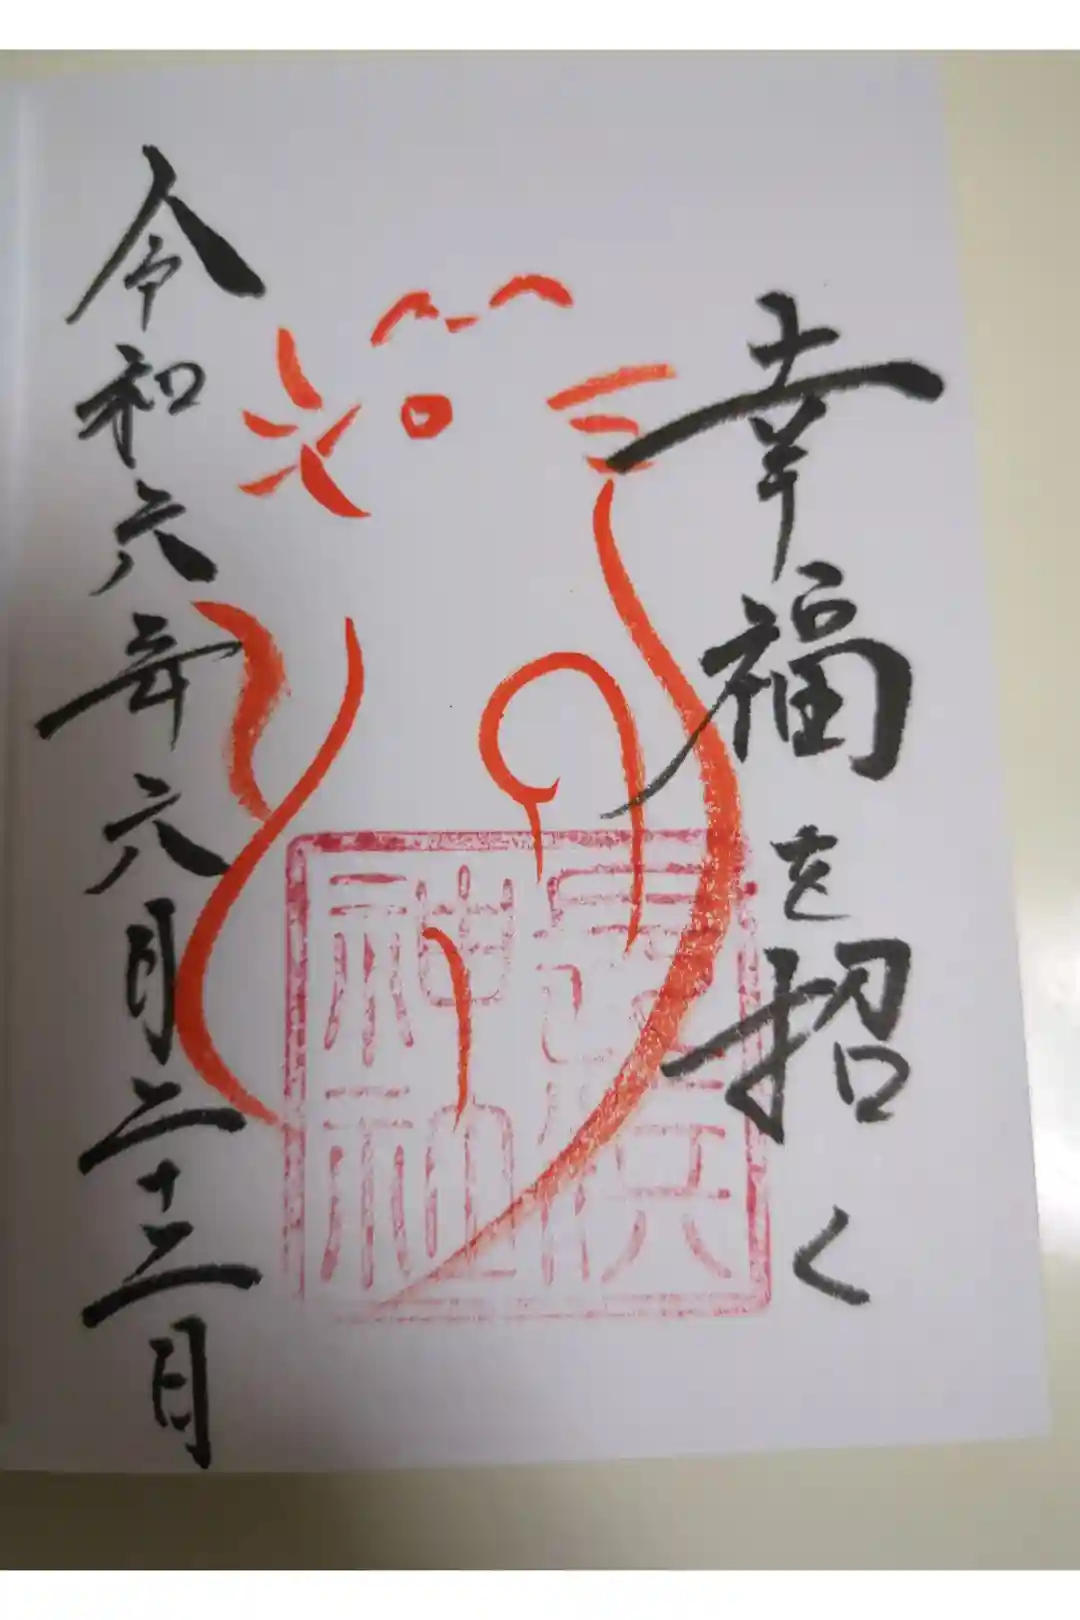 幸福を招く
長浜神社
令和六年六月二十三日